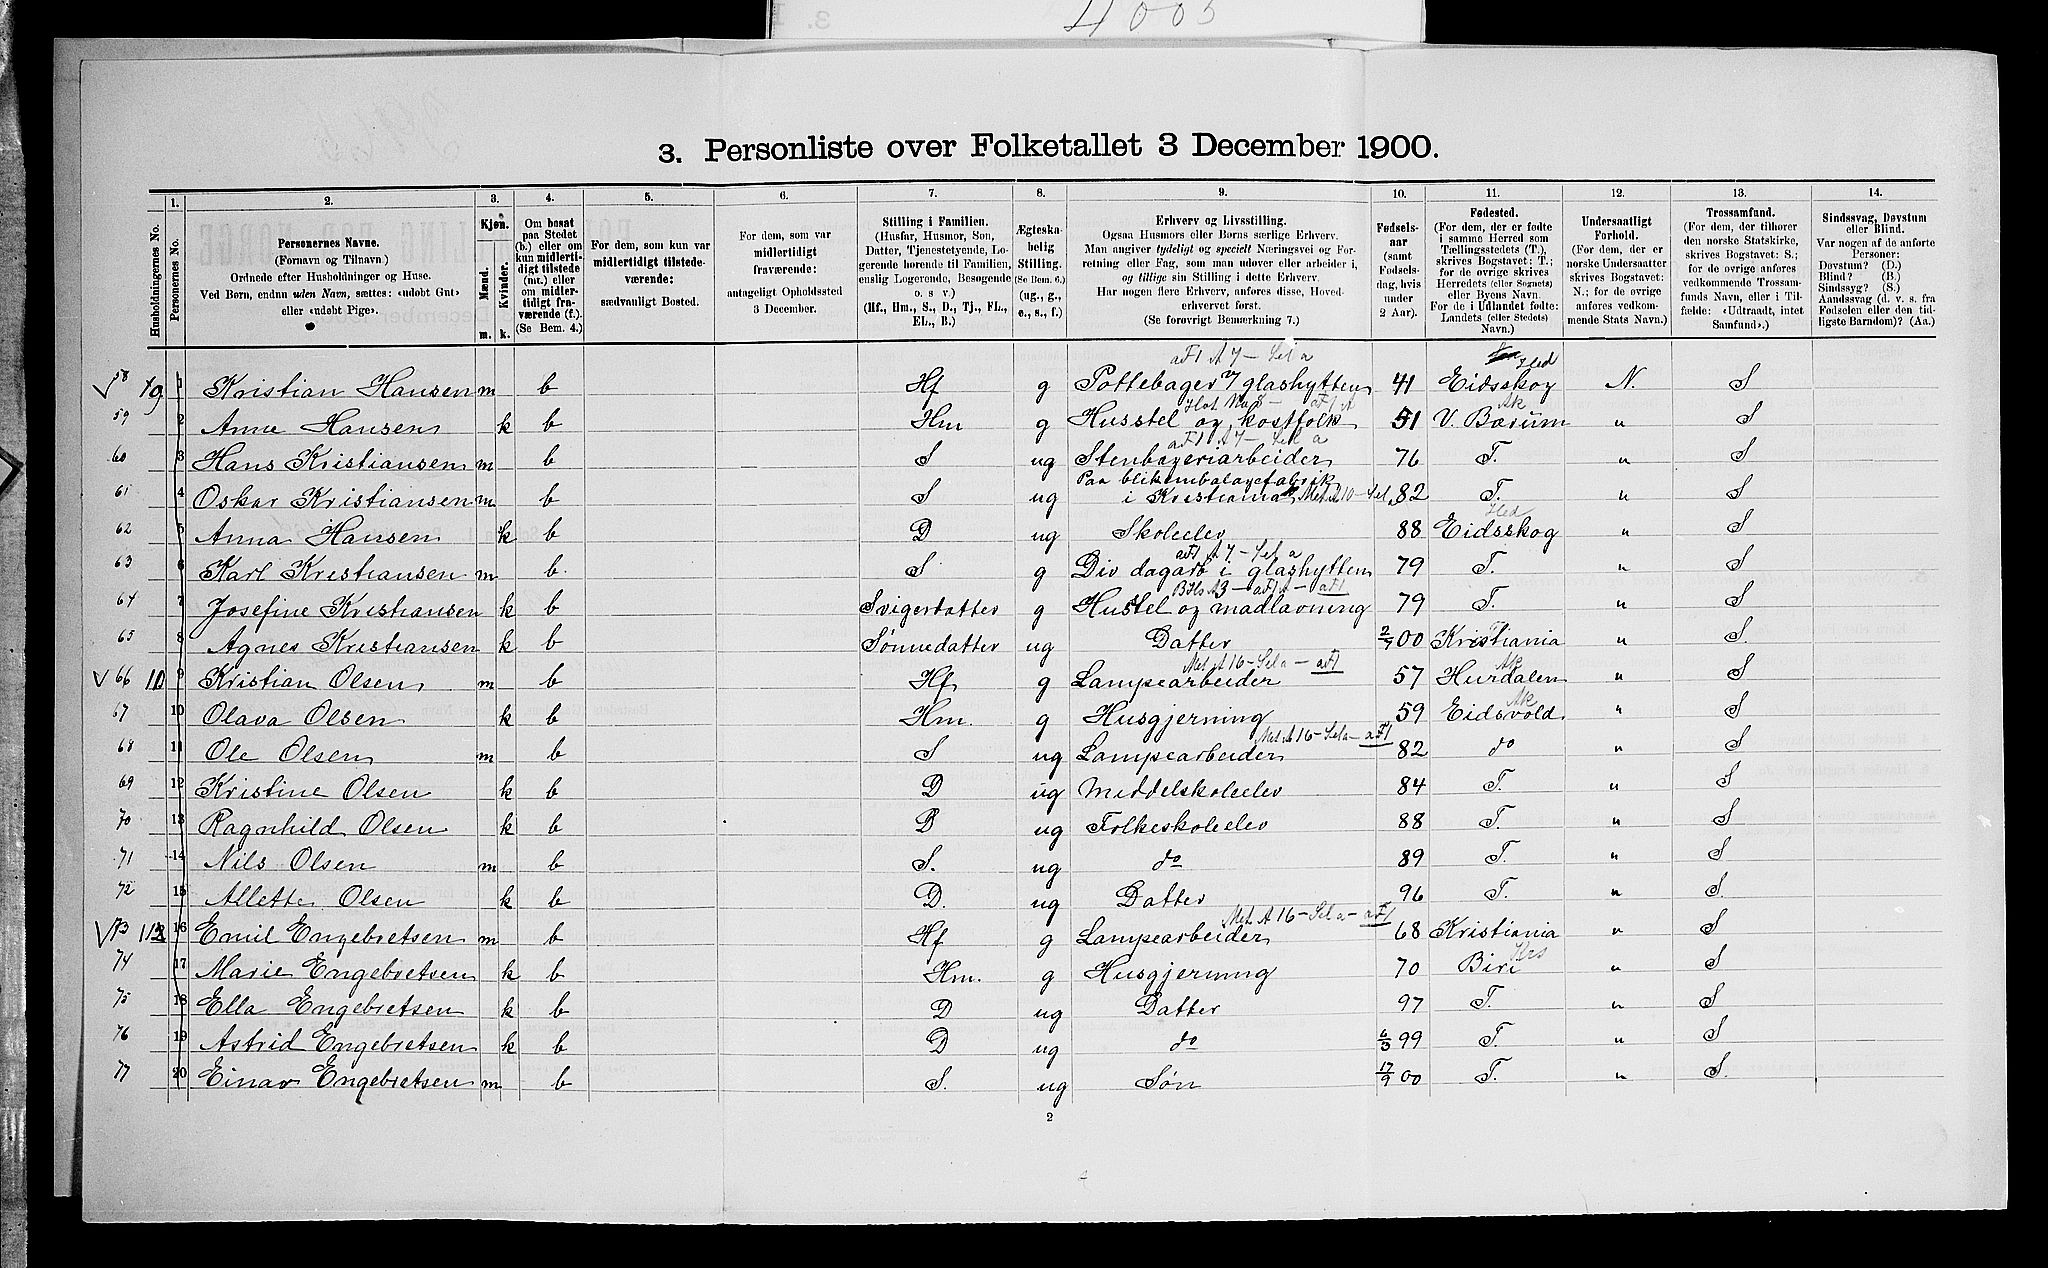 4005
3. Personliste over Folketallet 3 December 1900.
Husholdningernes No.
1. Personernes No.
2. Personernes Navne.
(Fornavn og Tilnavn.)
Ordnede efter Husholdninger og Huse.
Ved Børn, endnu uden Navn, sættes: «udøbt Gut»
eller «udøbt Pige».
3. Kjøn.
Mænd. Kvinder.
m. k.
4. Om bosat
paa Stedet
(b.) eller om
kun midlerti-
digt tilstede
(mt.) eller
om midler-
tidigt fra-
værende (f.).
(Se Bem. 4.)
5. For dem, som kun var
midlertidigt tilstede-
værende:
sædvanligt Bosted.
6. For dem, som var
midlertidigt
fraværende:
antageligt Opholdssted
3 December.
7. Stilling i Familien.
(Husfar, Husmor, Søn,
Datter, Tjenestetyende, Lo-
gerende hørende til Familien,
enslig Logerende, Besøgende
o. s. v.)
(Hf., Hm., S., D., Tj., FL.,
EL., B.)
8. Ægteska-
belig
Stilling.
(Se Bem. 6.)
(ug., g.,
e., s., f.)
9. Erhverv og Livsstilling.
Ogsaa Husmors eller Børns særlige Erhverv.
Man angiver tydeligt og specielt Næringsvei og For-
retning eller Fag, som man udøver eller arbeider i,
og tillige sin Stilling i dette Erhverv.
Har nogen flere Erhverv, anføres disse, Hoved-
erhvervet først.
(Se forøvrigt Bemærkning 7.)
10. Fødsels-
aar
(samt
Fødsels-
dag, hvis
under
2 Aar).
11. Fødested.
(For dem, der er fødte
i samme Herred som
Tællingsstedets (T.),
skrives Bogstavet: T.;
for de øvrige skrives
Herredets (eller Sognets)
eller Byens Navn.
For de i Udlandet fødte:
Landets (eller Stedets)
Navn.)
12. Undersaatligt
Forhold.
(For dem, der er
norske Undersaatter
skrives Bogstavet:
N.; for de øvrige
anføres vedkom-
mende Stats Navn.)
13. Trossamfund.
(For dem, der tilhører
den norske Statskirke,
skrives Bogstavet: S.;
for de øvrige anføres
vedkommende Trossam-
funds Navn, eller i Til-
fælde: «Udtraadt, intet
Samfund».)
14. Sindssvag, Døvstum
eller Blind.
Var nogen af de anførte
Personer:
Døvstum? (D.)
Blind? (B.)
Sindssyg? (S.)
Aandssvag (d. v. s. fra
Fødselen eller den tid-
ligste Barndom)? (Aa.)
58 9 1 Kristian Hansen m b Hf g Pottebager v/ glashytten 41 Eidsskog Hed N. S
59 2 Anne Hansen k b Hm g Husstel og kostfolk 51 V. Bærum Ak " S
60 3 Hans Kristiansen m b S ug Stenbageriarbeider 76 T. " S
61 4 Oskar Kristiansen m b S ug Paa blikembalagefabrik i Kristiania Met A 10 - Sel 82 T. " S
62 5 Anna Hansen k b D ug Skoleelev 88 Eidsskog Hed " S
63 6 Karl Kristiansen m b. S g Div dagarb i glashytten 79 T. " S
64 7 Josefine Kristiansen k b Svigerdatter g Husstel og madlavning 79 T. " S
65 8 Agnes Kristiansen k b Sønnedatter ug Datter 2/7 00 Kristiania " S.
66 10 9 Kristian Olsen m b Hf g Lampearbeider Met A 16 - Sel a - aF1 57 Hurdalen Ak " S
67 10 Olava Olsen k b Hm. g Husgjerning 59 Eidsvold Ak " S
68 11 Ole Olsen m b S ug Lampearbeider Met A 16 - Sel a - aF1 82 do " S
69 12 Kristine Olsen k b D ug Middelskoleelev 84 T. " S
70 13 Ragnhild Olsen k b D ug Folkeskoleelev 88 T. " S
71 14 Nils Olsen m b S. ug do 89 T. " S
72 15 Allette Olsen k b D. ug Datter 96 T. " S.
73 16 Emil Engebretsen m b Hf g Lampearbeider Met A 16 - Sel a - aF1 68 Kristiania " S
74 17 Marie Engebretsen k b Hm. g Husgjerning 70 Biri Krs " S
75 18 Ella Engebretsen k b D ug Datter 97 T. " S
76 19 Astrid Engebretsen k b D ug do 6/3 99 T. " S
77 20 Einar Engebretsen m b S. ug Søn 17/9 00 T. " S.
2